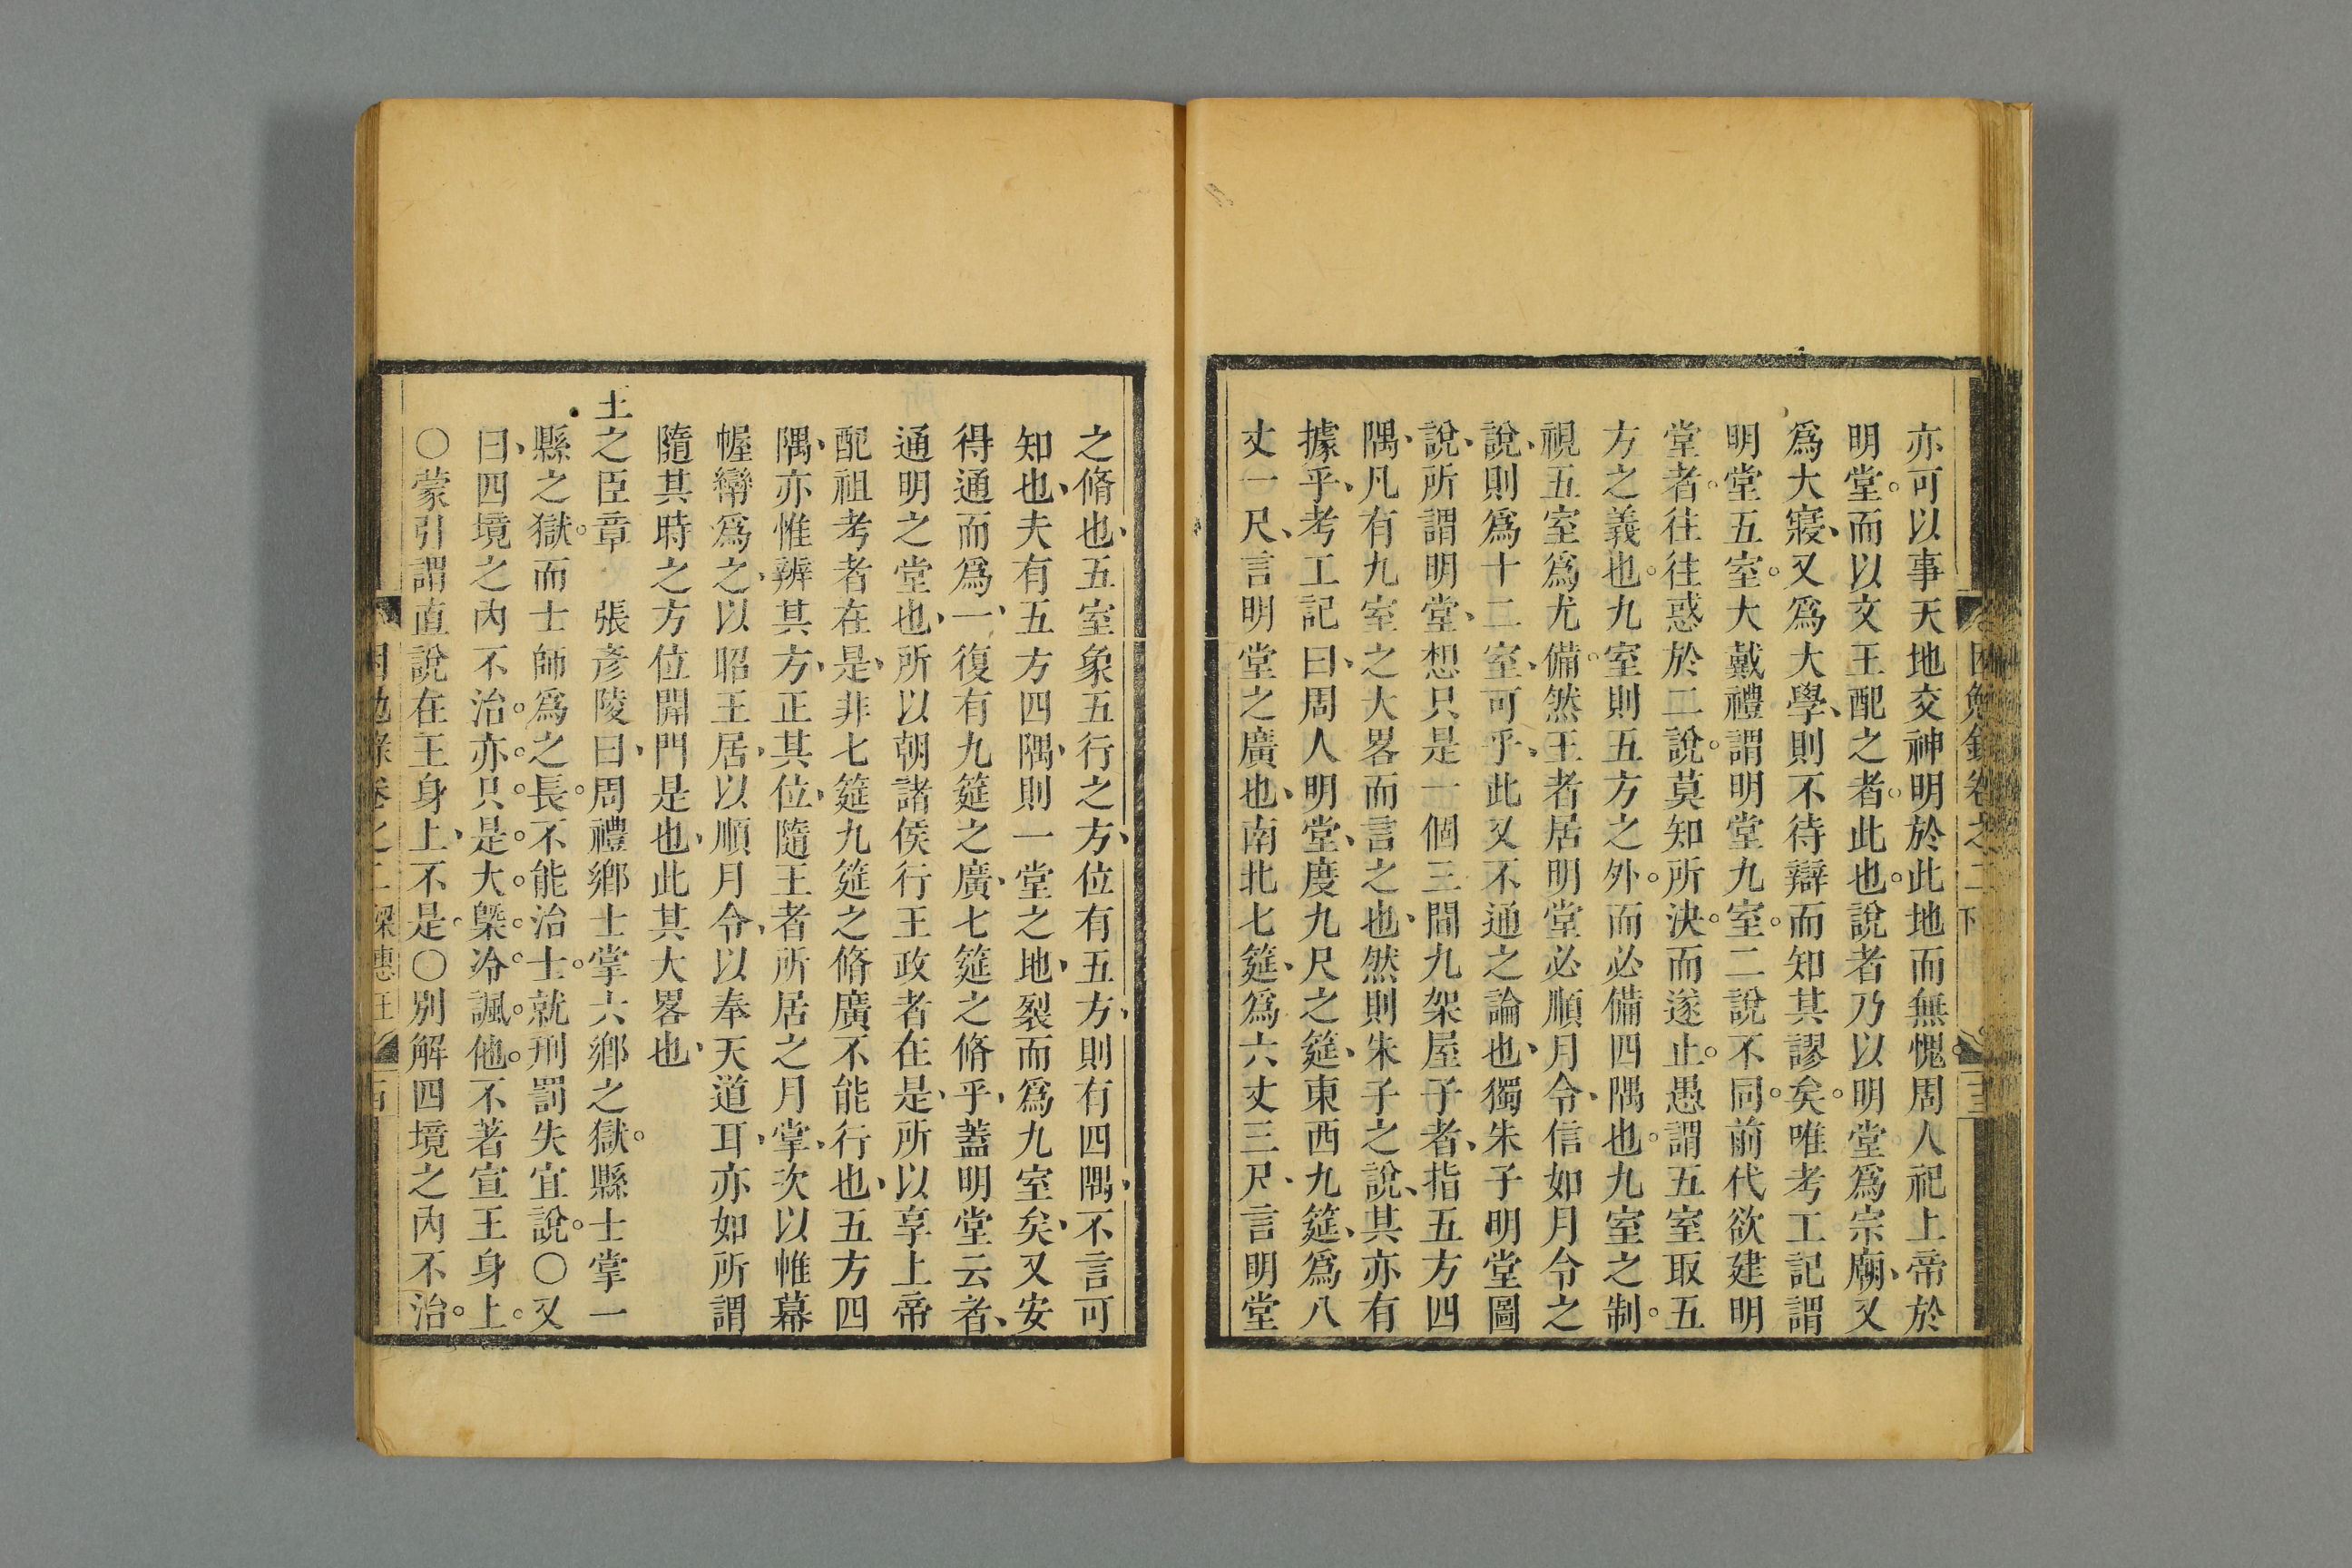 亦可以事天地交神明於此地而無愧。周人祀上帝於
明堂。而以文王配之者。此也。說者乃以明堂爲宗廟、又
爲大寢、又爲大學、則不待辯而知其謬矣。唯考工記謂
明堂五室。大戴禮謂明堂九室。二說不同。前代欲建明
堂者。往往惑於二說。莫知所決。而遂止。愚謂五室取五
方之義也。九室則五方之外。而必備四隅也。九室之制。
視五室爲尤備。然王者居明堂必順月令、信如月令之
說、則爲十二室、可乎、此又不通之論也、獨朱子明堂圖
說、所謂明堂、想只是一個三間九架屋子者、指五方四
隅、凡有九室之大畧而言之也、然則朱子之說、其亦有
據乎、考工記曰、周人明堂、度九尺之筵、東西九筵、爲八
丈一尺、言明堂之廣也、南北七筵、爲六丈三尺、言明堂
之脩也、五室象五行之方、位有五方、則有四隅、不言可
知也、夫有五方四隅、則一堂之地、裂而爲九室矣、又安
得通而爲一、復有九筵之廣、七筵之脩乎、蓋明堂云者、
通明之堂也、所以朝諸侯行王政者在是、所以享上帝
配祖考者在是、非七筵九筵之脩廣不能行也、五方四
隅、亦惟辨其方、正其位、隨王者所居之月、掌次以帷幕
幄巒爲之、以昭王居、以順月令、以奉天道耳、亦如所謂
隨其時之方位開門是也、此其大畧也、
王之臣章 張彥陵曰、周禮鄉士掌六鄉之獄。縣士掌一
縣之獄。而士師爲之長。不能治士。就刑罰失宜說。○又
曰、四境之內不治。亦。只。是。大。槩。冷。諷。他。不著宣王身上。
○蒙引謂直說在王身上、不是。○別解四境之內不治。